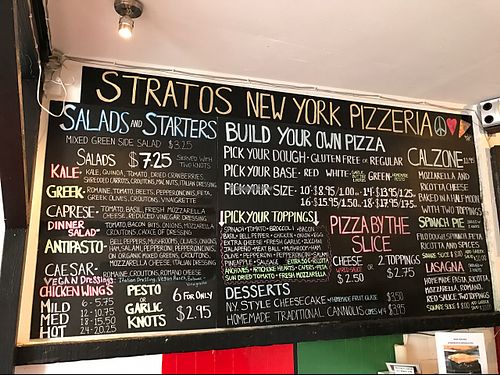 STRATOS NEW YORK PIZZERIA
SALADS AND STARTERS
MIXED GREEN SIDE SALAD $3.25
SALADS $7.25 SERVED WITH TWO KNOTS
KALE- KALE, QUINOA, TOMATO, DRIED CRANBERRIES,
SHREDDED CARROTS, CROUTONS, MACNUTS, ITALIAN DRESSING
GREEK- ROMAINE, TOMATO, BEETS, PEPPERONCINIS, FETA,
GREEK OLIVES, CROUTONS, VINAIGRETTE
CAPRESE- TOMATO, BASIL, FRESH MOZZARELLA
CHEESE, REDUCED VINEGAR DRESSING
DINNER SALAD- TOMATO, BACON BITS, ONIONS, MOZZARELLA
CROUTONS, CHOICE OF DRESSING
ANTIPASTO- BELL PEPPERS, MUSHROOMS, OLIVES, ONIONS
HAM, SALAMI, PEPPERONI, PEPPERONCINIS,
ON ORGANIC MIXED GREENS, CROUTONS,
MOZZARELLA CHEESE, ITALIAN DRESSING
CAESAR- ROMAINE, CROUTONS, ROMANO CHEESE
VEGAN DRESSINGS-
CHICKEN WINGS
MILD 6 - 5.75
MED 12 - 10.75
HOT 18 - 15.50
24 - 20.25
PESTO
OR
GARLIC
KNOTS
6 FOR ONLY
$2.95
BUILD YOUR OWN PIZZA
PICK YOUR DOUGH - GLUTEN FREE OR REGULAR
PICK YOUR BASE - RED WHITE GREEN
PICK YOUR SIZE - 10" $8.95/1.00 14" $13.95/1.25
16" $15.95/1.50 18" $17.95/1.75
PICK YOUR TOPPINGS
SPINACH • TOMATO • BROCCOLI • BACON
BASIL • BELL PEPPERS • CHICKEN • ONIONS
EXTRA CHEESE • FRESH GARLIC • ZUCCHINI
JALAPENO • MEAT BALL • MUSHROOM • HAM
OLIVES • PEPPERONI • PEPPERONCINI • SALAMI
PINEAPPLE • SAUSAGE
ANCHOVIES • ARTICHOKE HEARTS • CAPERS • FETA
SUN DRIED TOMATO • FRESH MOZZARELLA
PIZZA BY THE
SLICE
CHEESE OR 2 TOPPINGS
$2.50 $2.75
DESSERTS
NY. STYLE CHEESECAKE $3.50
HOMEMADE TRADITIONAL CANNOLIS $3.95
CALZONE
MOZZARELLA AND
RICOTTA CHEESE
BAKED IN A HALF MOON
WITH TWO TOPPINGS
SPINACH PIE
PIZZA DOUGH, SPINACH, FETA,
RICOTTA AND SPICES
LASAGNA
HOMEMADE PASTA, RICOTTA,
MOZZARELLA, ROMANO,
RED SAUCE, TWO TOPPINGS